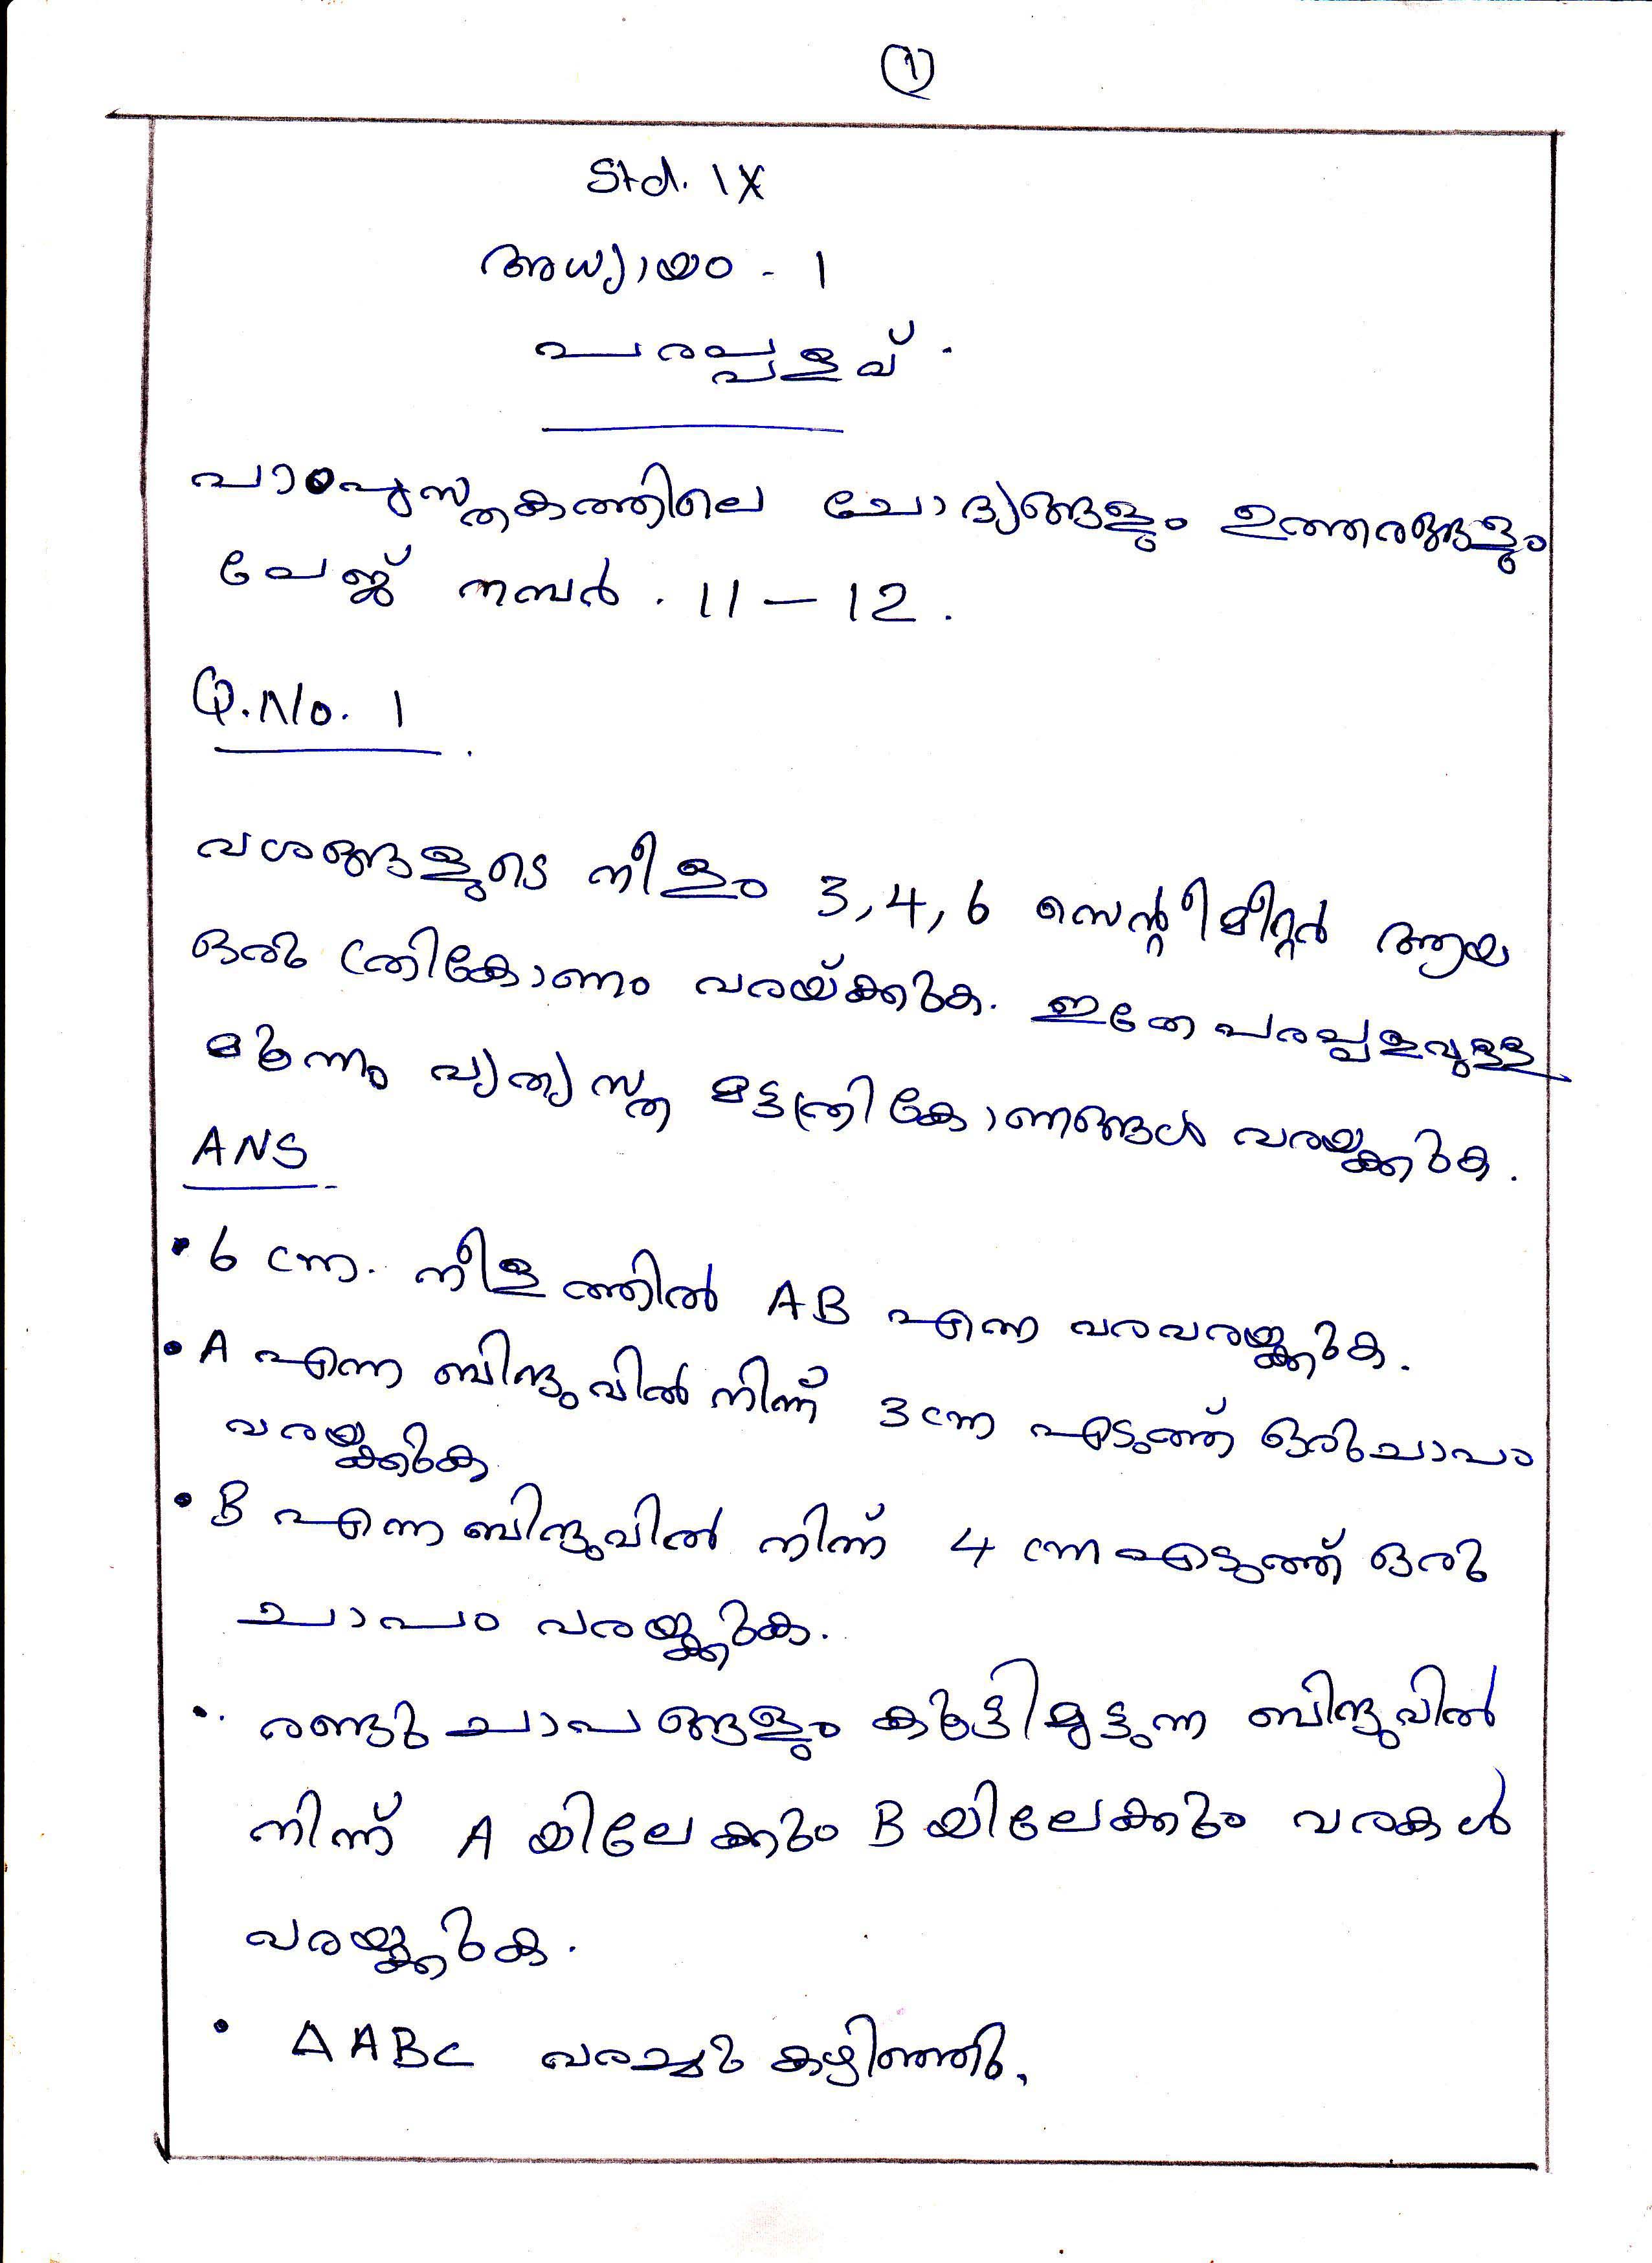 1
Std. IX
അധ്യായം - 1
പരപ്പളവ് .
പാഠപുസ്തകത്തിലെ ചോദ്യങ്ങളും ഉത്തരങ്ങളും
പേജ് നമ്പർ . 11 – 12 .
Q.No. 1
വശങ്ങളുടെ നീളം 3, 4, 6 സെന്റീമീറ്റർ ആയ
ഒരു ത്രികോണം വരയ്ക്കുക. ഇതേ പരപ്പളവുള്ള
മൂന്നു വ്യത്യസ്ത മട്ടത്രികോണങ്ങൾ വരയ്ക്കുക .
ANS
• 6 cm. നീളത്തിൽ AB എന്ന വരവരയ്ക്കുക .
• A എന്ന ബിന്ദുവിൽ നിന്ന് 3 cm എടുത്ത് ഒരുചാപം
വരയ്ക്കുക
• B എന്ന ബിന്ദുവിൽ നിന്ന് 4 cm എടുത്ത് ഒരു
ചാപം വരയ്ക്കുക.
• രണ്ടു ചാപങ്ങളും കൂട്ടിമുട്ടുന്ന ബിന്ദുവിൽ
നിന്ന് A യിലേക്കും B യിലേക്കും വരകൾ
വരയ്ക്കുക .
• ΔABC വരച്ചു കഴിഞ്ഞു.